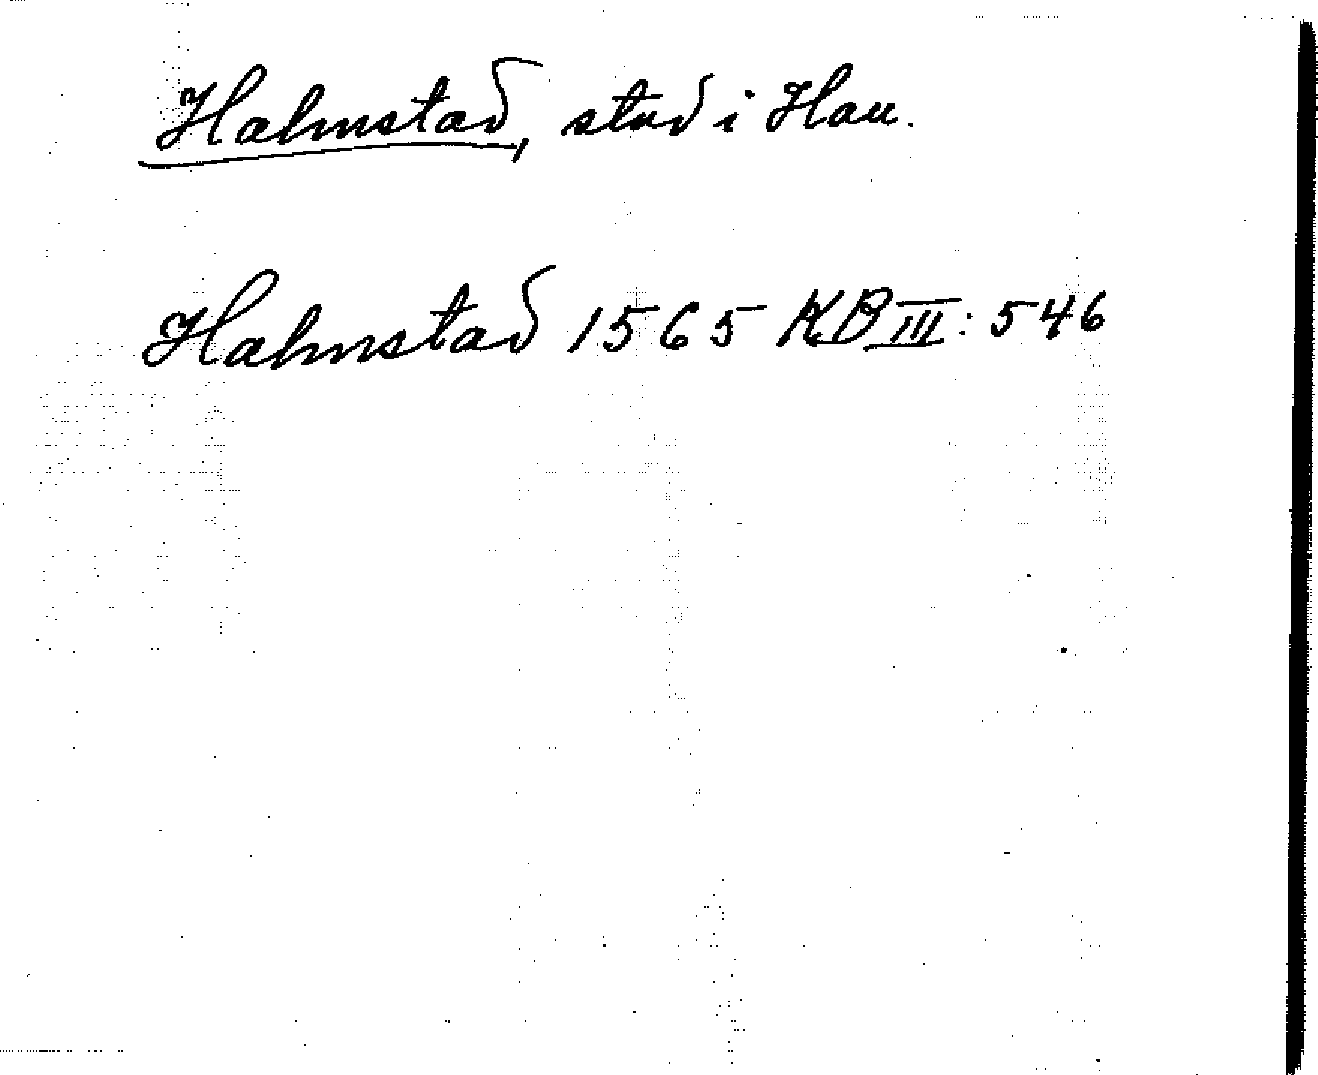 Halmstad, stad i Hall.
Halmstad 1565 KB III: 546